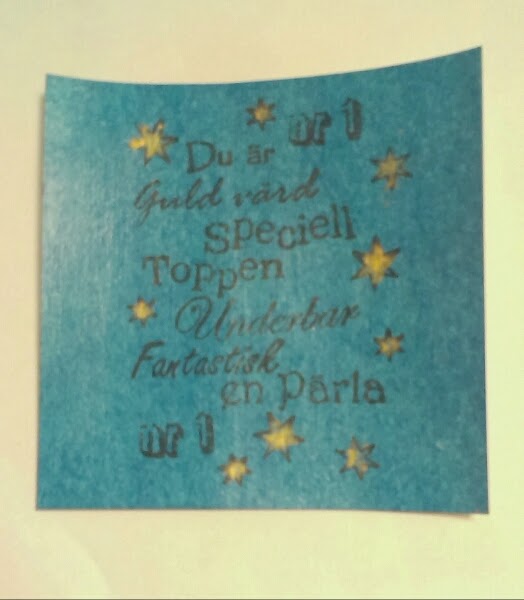 nr 1
Du är
Guld värd
Speciell
Toppen
Underbar
Fantastisk
en Pärla
nr 1